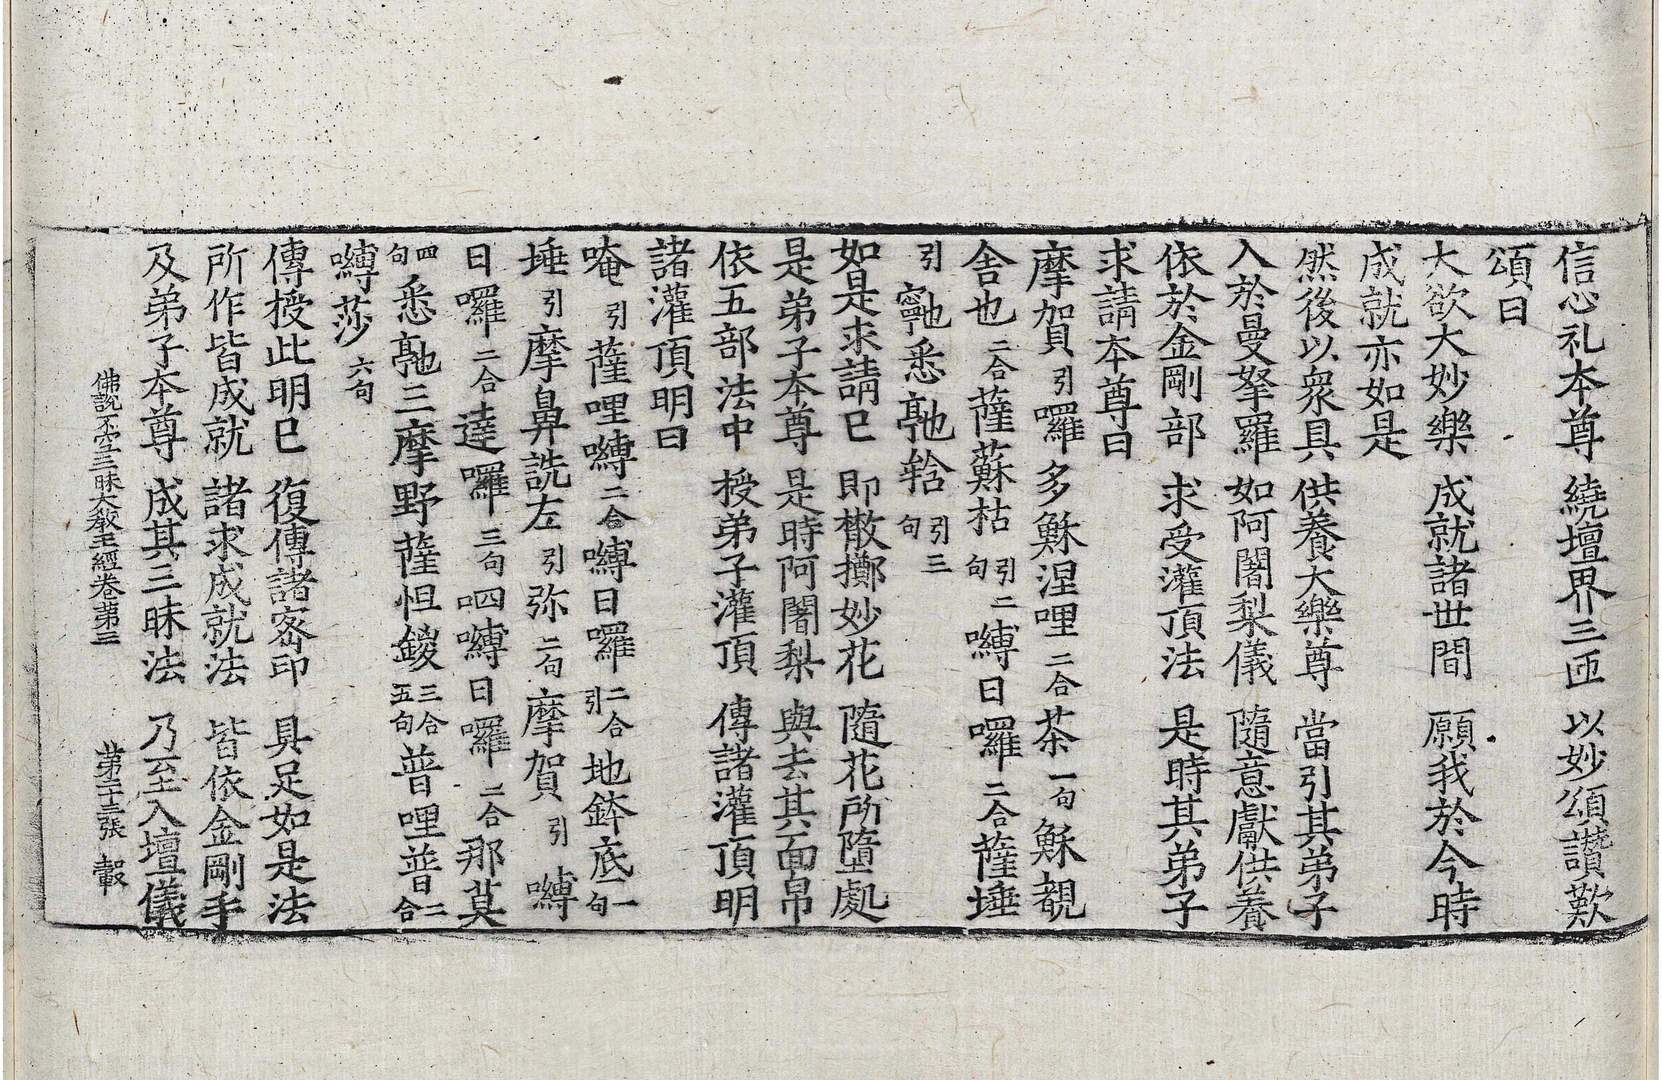 信心礼本尊　繞壇界三匝　以妙頌讚歎
頌曰
大欲大妙樂　成就諸世間　願我於今時
成就亦如是
然後以衆具　供養大樂尊　當引其弟子
入於曼拏羅　如阿闍梨儀　隨意獻供養
依於金剛部　求受灌頂法　是時其弟子
求請本尊曰
摩賀引囉多穌涅哩二合茶一句穌覩
舍也二合薩蘇枯引二句嚩日囉二合薩埵
引悉引三句
如是求請已　即擲妙花　隨花所墮處
是弟子本尊　是時阿闍梨　與去其面帛
依五部法中　授弟子灌頂　傳諸灌頂明
諸灌頂明曰
唵引薩哩嚩二合嚩日囉二合引地鉢底一句
埵引摩鼻詵左引弥二句摩賀引嚩
日囉二合達囉三句呬嚩日囉二合那莫
四句悉三摩野薩怛鑁三合五句普哩普二合
嚩莎六句
傳授此明已　復傳諸密印　具足如是法
所作皆成就　諸求成就法　皆依金剛手
及弟子本尊　成其三昧法　乃至入壇儀
佛說不空三昧大教王經卷第三　第二十三張　轂